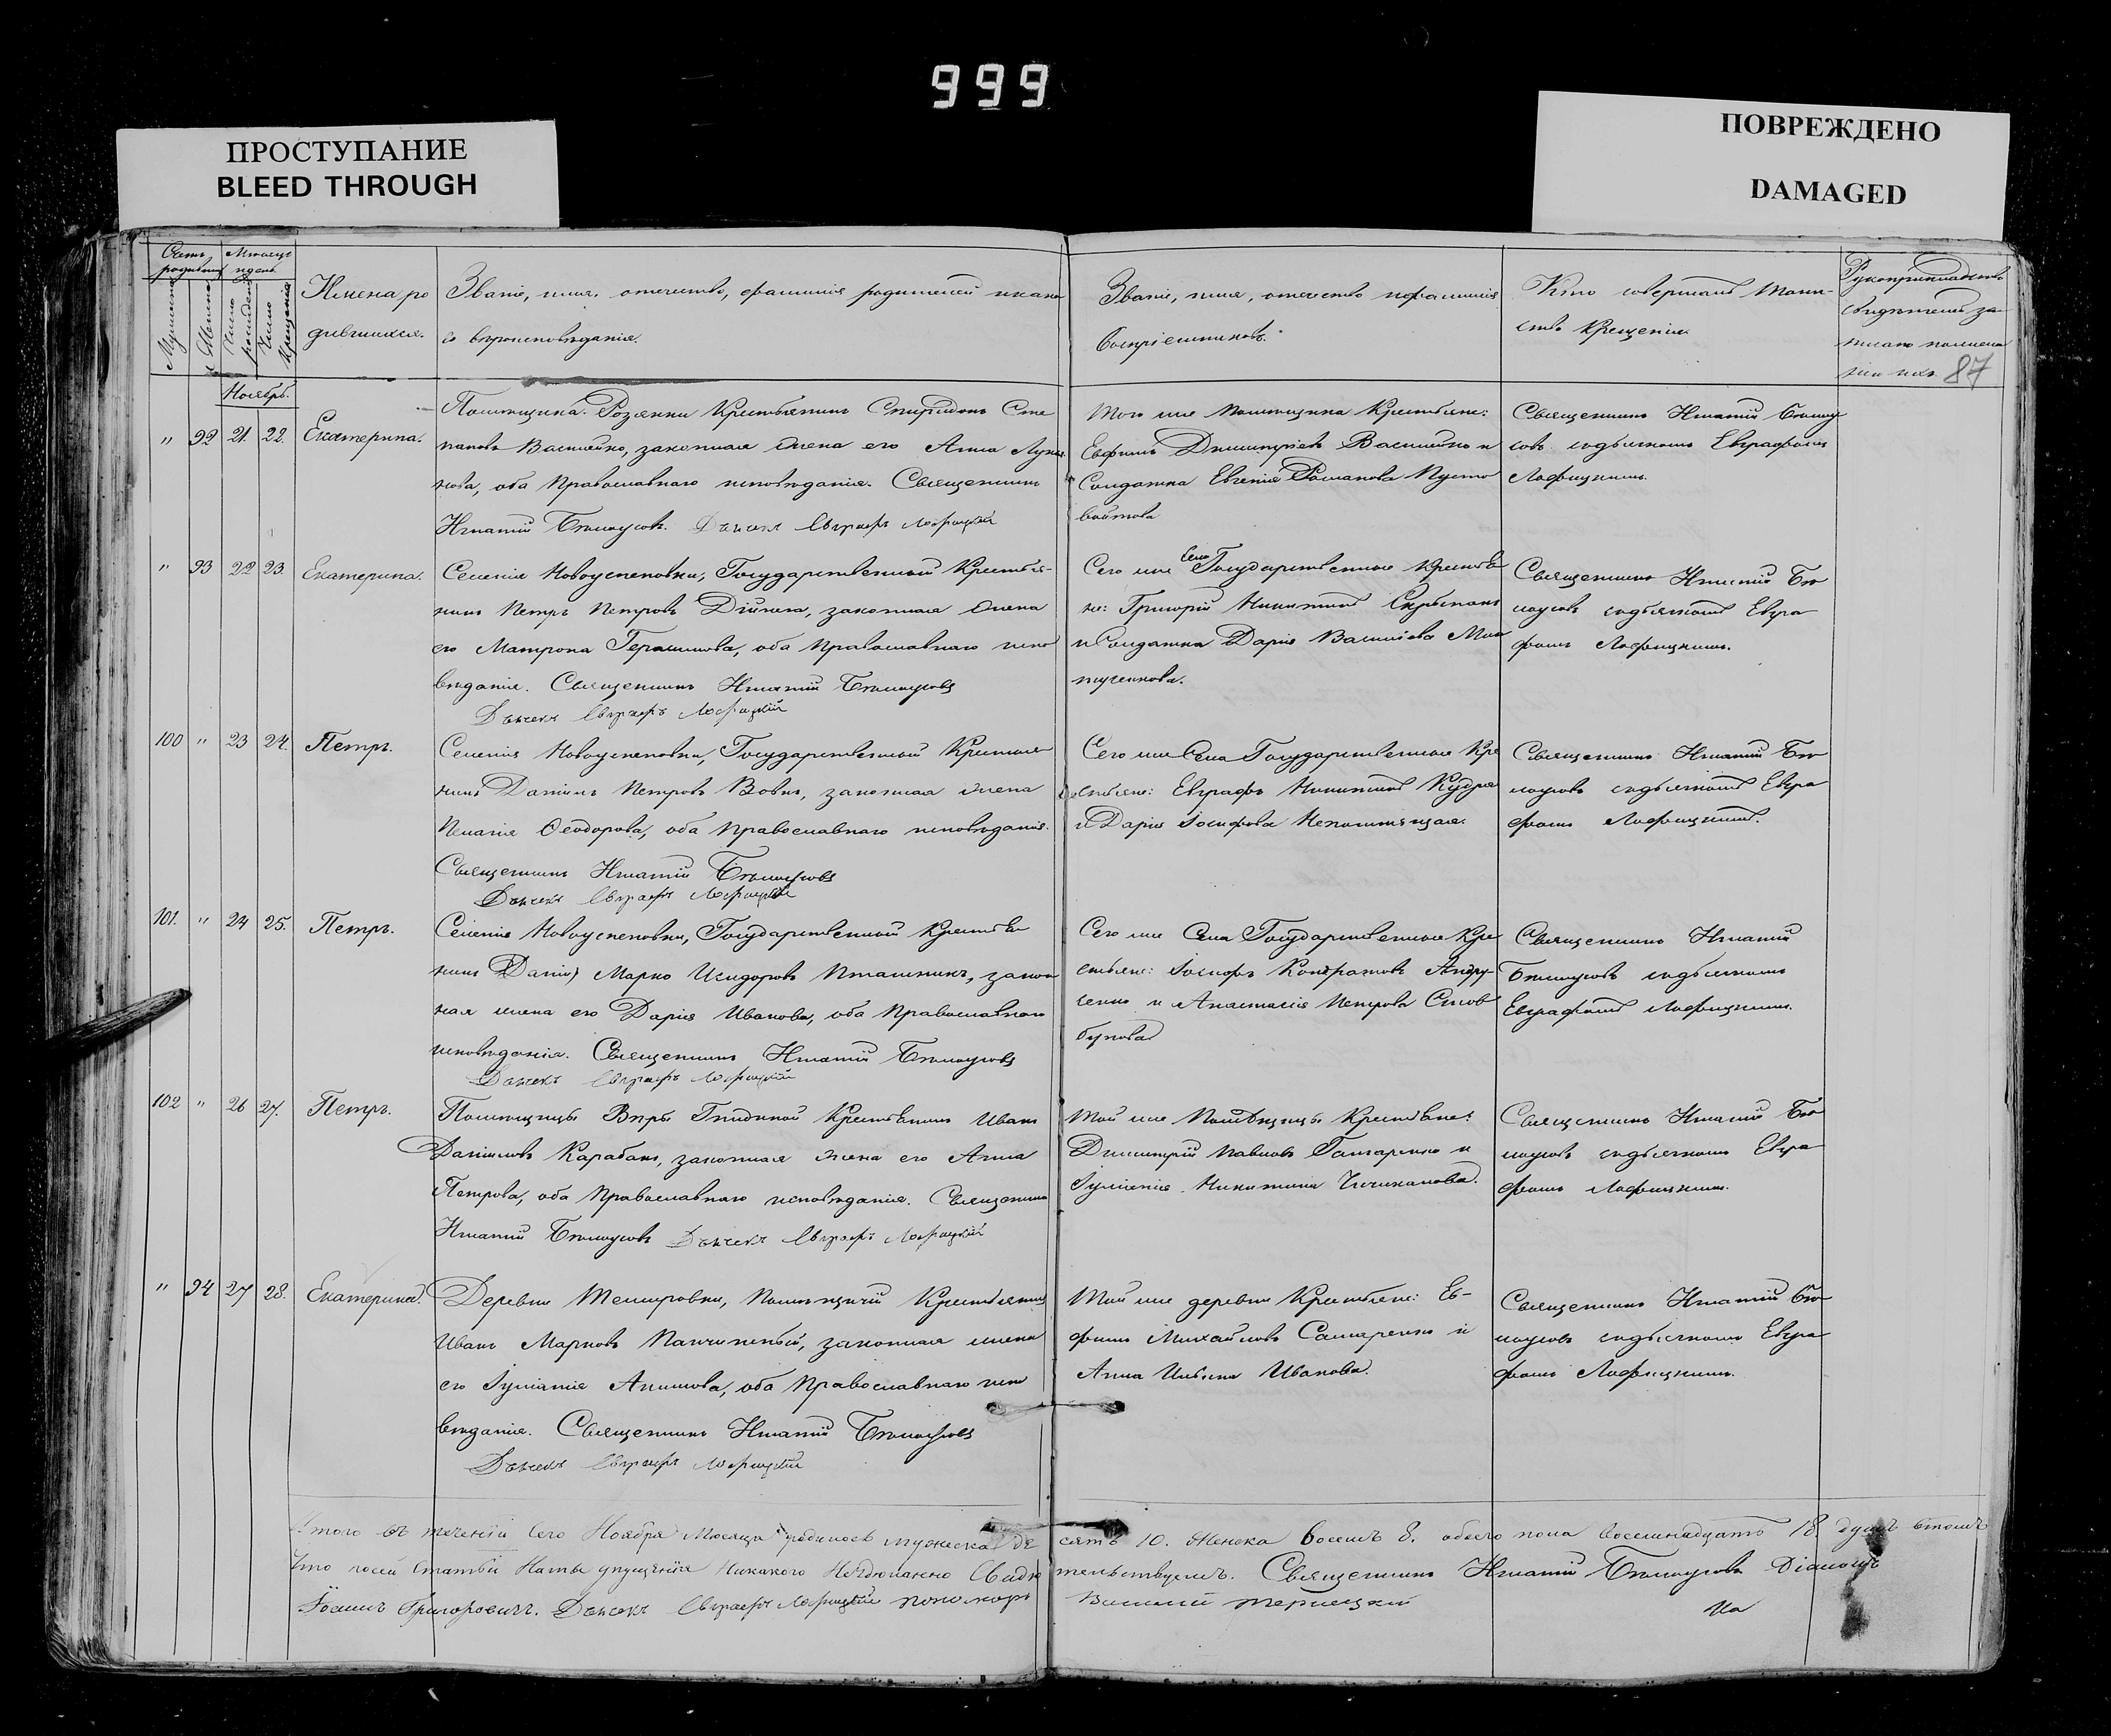 999
ПРОСТУПАНИЕ
BLEED THROUGH
ПОВРЕЖДЕНО
DAMAGED
Счетъ родившихся
Мѣсяцъ и день
Мужеска
Женска
Число рожденія
Число крещенія
Имена ро
дившихся.
Званіе, имя, отечество, фамилія родителей и како
го вѣроисповѣданія.
Званіе, имя, отечество и фамилія
Воспріемниковъ.
Кто совершалъ Таин-
ство крещенія
Рукоприкладство
свидѣтелей за-
писи
87
Ноябрь.
" 92 21. 22. Екатерина.
Помѣщика Розянки Крестьянинъ Спиридонъ Сте
пановъ Василейко, законная жена его Анна
оба Православнаго исповѣданія. Священникъ
Игнатій Бѣлоусовъ. Дьячекъ Евграфъ Лофицкій
Того же помѣщика Крестьяне:
Евфимъ Димитріевъ Василейко и
Солдатка Евгенія Романова Пусто
войтова
Священникъ Игнатій Бѣлоу
совъ съ дьячкомъ Евграфомъ
Лофицкимъ.
" 93 22 23. Екатерина.
Селенія Новоуспеновки, Государственный Крестья-
нинъ Петръ Петровъ законная жена
его Матрона Герасимова, оба Православнаго испо
вѣданія. Священникъ Игнатій Бѣлоусовъ
Дьячекъ Евграфъ Лофицкій
Сего же Села Государственные Крестья
не: Григорій Никитинъ
и Солдатка Дарія Василіева
Священникъ Игнатій Бѣ
лоусовъ съ дьячкомъ Евгра
фомъ Лофицкимъ.
100 " 23 24. Петръ.
Селенія Новоуспеновки, Государственный Крестья
нинъ Даніилъ Петровъ Вовкъ, законная жена
Пелагія Ѳеодорова, оба Православнаго исповѣданія.
Священникъ Игнатій Бѣлоусовъ
Дьячекъ Евграфъ Лофицкій
Сего же Села Государственные Кре
стьяне: Евграфъ Никитинъ Кудря
и Дарія Іосифова
Священникъ Игнатій Бѣ
лоусовъ съ дьячкомъ Евгра
фомъ Лофицкимъ.
101. " 24 25. Петръ.
Селенія Новоуспеновки, Государственный Крестья
нинъ Марко Исидоровъ Пташникъ, закон
ная жена его Дарія Иванова, оба Православнаго
исповѣданія. Священникъ Игнатій Бѣлоусовъ
Дьячекъ Евграфъ Лофицкій
Сего же Села Государственные Кре
стьяне: Іосифъ Кондратовъ Андру
сенко и Анастасія Петрова Стов
бунова
Священникъ Игнатій
Бѣлоусовъ съ дьячкомъ
Евграфомъ Лофицкимъ.
102 " 26 27. Петръ.
Помѣщицы Вѣры Крестьянинъ Иванъ
Даніиловъ Карабанъ, законная жена его Анна
Петрова, оба Православнаго исповѣданія. Священникъ
Игнатій Бѣлоусовъ Дьячекъ Евграфъ Лофицкій
Той же Помѣщицы Крестьяне:
Димитрій Павловъ Гончаренко и
Іуліанія Никитина Чичиканова.
Священникъ Игнатій Бѣ
лоусовъ съ дьячкомъ Евгра
фомъ Лофицкимъ.
" 94 27 28. Екатерина.
Деревни Темировки, Помѣщичій Крестьянинъ
Иванъ Марковъ законная жена
его Іуліанія Акимова, оба Православнаго испо
вѣданія. Священникъ Игнатій Бѣлоусовъ
Дьячекъ Евграфъ Лофицкій
Той же деревни Крестьяне: Ев-
фимъ Михайловъ Самаренко и
Анна Ильина Иванова.
Священникъ Игнатій Бѣ
лоусовъ съ дьячкомъ Евгра
фомъ Лофицкимъ.
Итого въ теченіи сего Ноября Мѣсяца родилось мужеска де сять 10. Женска восемъ 8. обоего пола восемнадцать 18 душъ втомъ
Что посей статьи упущенія никакого Свидѣ тельствуемъ. Священникъ Игнатій Бѣлоусовъ Діаконъ
Іоаннъ Григоровичъ. Дьячекъ Евграфъ Лофицкій пономарь Василій Терлецкій
На